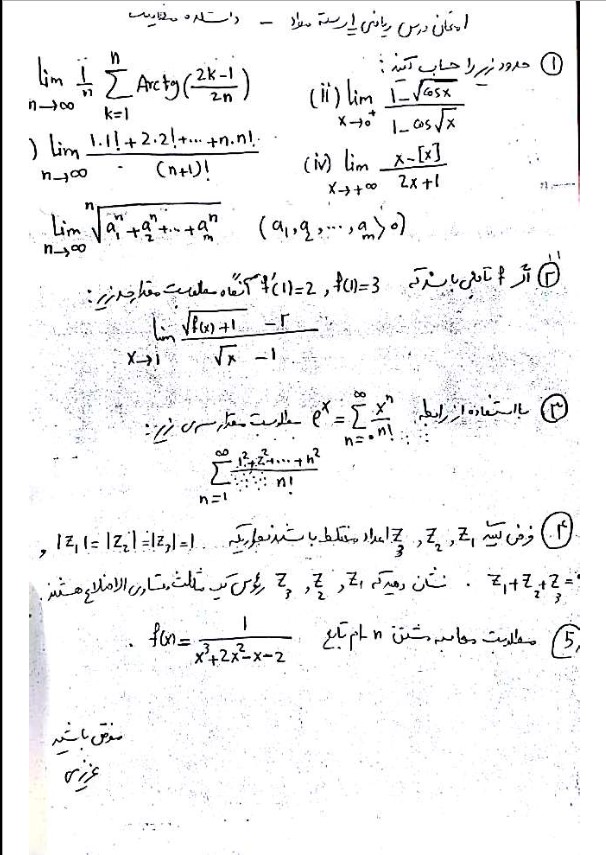 امتحان درس ریاضی ۱ رسته مواد -
① حدود زیر را حساب کنید:
lim n→∞ 1/n ∑ k=1 n Arctg((2k-1)/2n)
(ii) lim x→0⁺ (1-√cosx)/(1-cos√x)
) lim n→∞ (1.1!+2.2!+...+n.n!)/(n+1)!
(iv) lim x→+∞ (x-[x])/(2x+1)
lim n→∞ ⁿ√(a₁ⁿ+a₂ⁿ+...+aₘⁿ) (a₁,a₂,...,aₘ>0)
② اگر f تابعی باشد که f(1)=3 , f'(1)=2 آنگاه مطلوبست مقدار حد زیر:
lim x→1 (√(f(x)+1) -۲)/(√x -1)
③ با استفاده از رابطه eˣ=∑ n=۰ ∞ xⁿ/n! مطلوبست مقدار سری زیر:
∑ n=1 ∞ (1²+2²+...+n²)/n!
④ فرض کنید z₁ , z₂ , z₃ اعداد مختلط باشند بطوریکه |z₁|=|z₂|=|z₃|=1 ,
z₁+z₂+z₃=۰ . نشان دهید که z₁ , z₂ , z₃ رؤس یک مثلث متساوی الاضلاع هستند.
⑤ مطلوبست محاسبه مشتق n ام تابع f(x)=1/(x³+2x²-x-2) .
موفق باشید
عزیزی